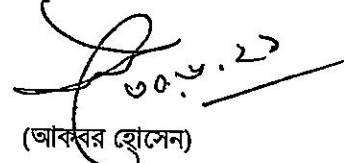 ৩০.৬.২১
(আকবর হোসেন)